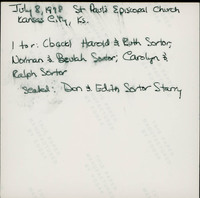 July 8, 1998 St Paul's Episcopal Church
Kansas City, Ks.
l to r: (back) Harold & Ruth Sorter,
Norman & Beulah Sorter, Carolyn &
Ralph Sorter
Seated: Don & Edith Sorter Starry